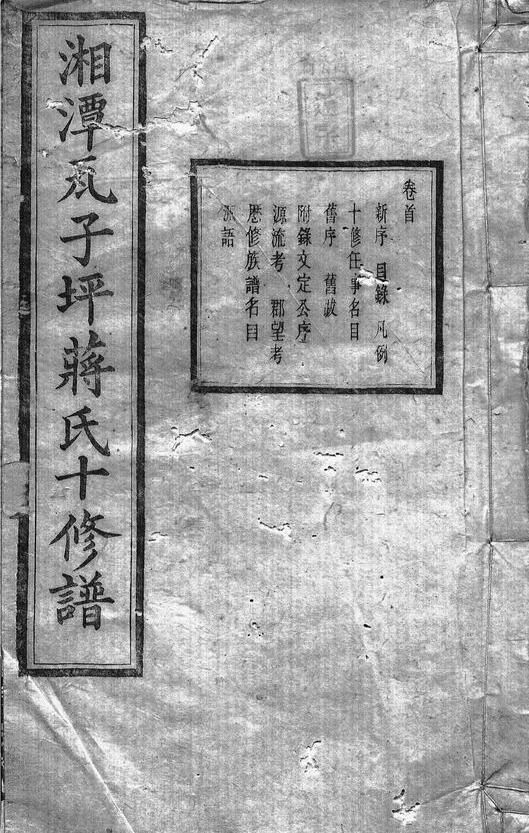 湘潭瓦子坪蔣氏十修譜
卷首
新序 目錄 凡例
十修任事名目
舊序 舊跋
附錄文定公序
源流考 郡望考
歷修族譜名目
派語